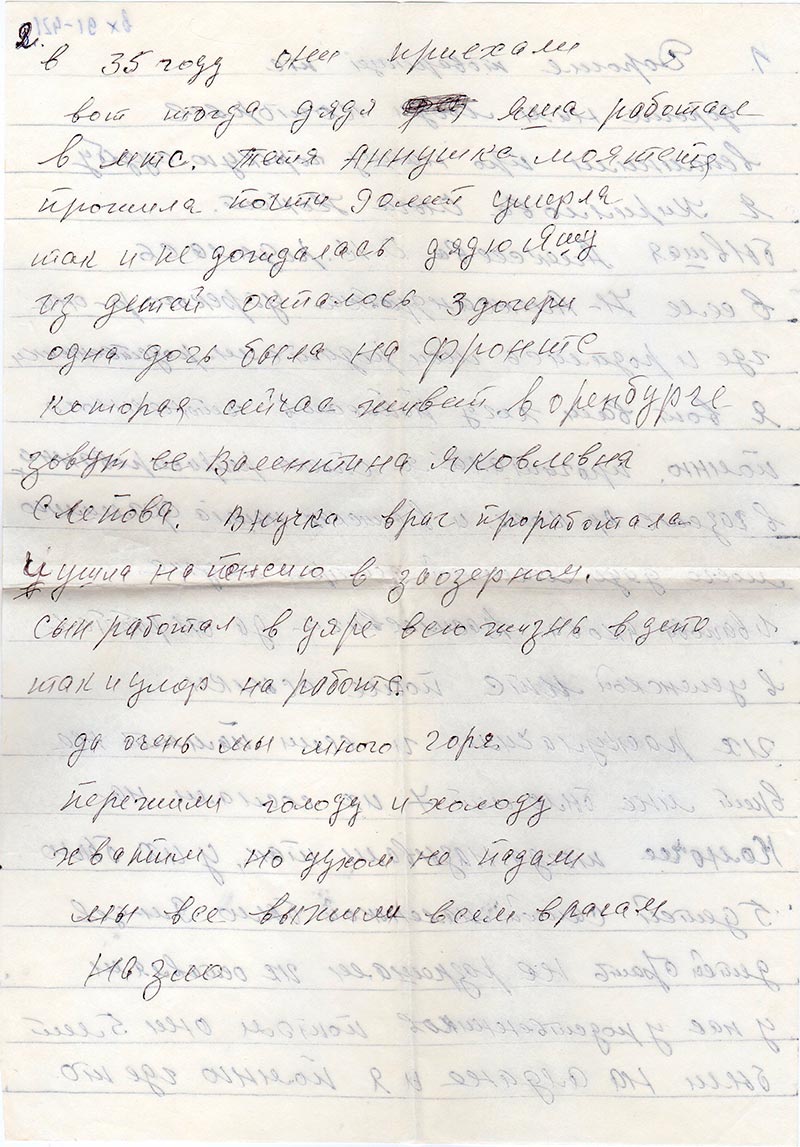 2.
в 35 году они приехали
вот тогда дядя Яша работал
в мтс. тетя Аннушка моя тетя
прожила почти 90 лет умерла
так и не дождалась дядю Яшу
из детей осталось 3 дочери
одна дочь была на фронте
которая сейчас живет в оренбурге
зовут ее Валентина Яковлевна
Слепова. Внучка врач проработала
и ушла на пенсию в заозерном.
сын работал в уяре всю жизнь в депо
так и умер на работе.
да очень мы много горя
пережили голоду и холоду
хватили но духом не падали
мы все выжили всем врагам
на зло